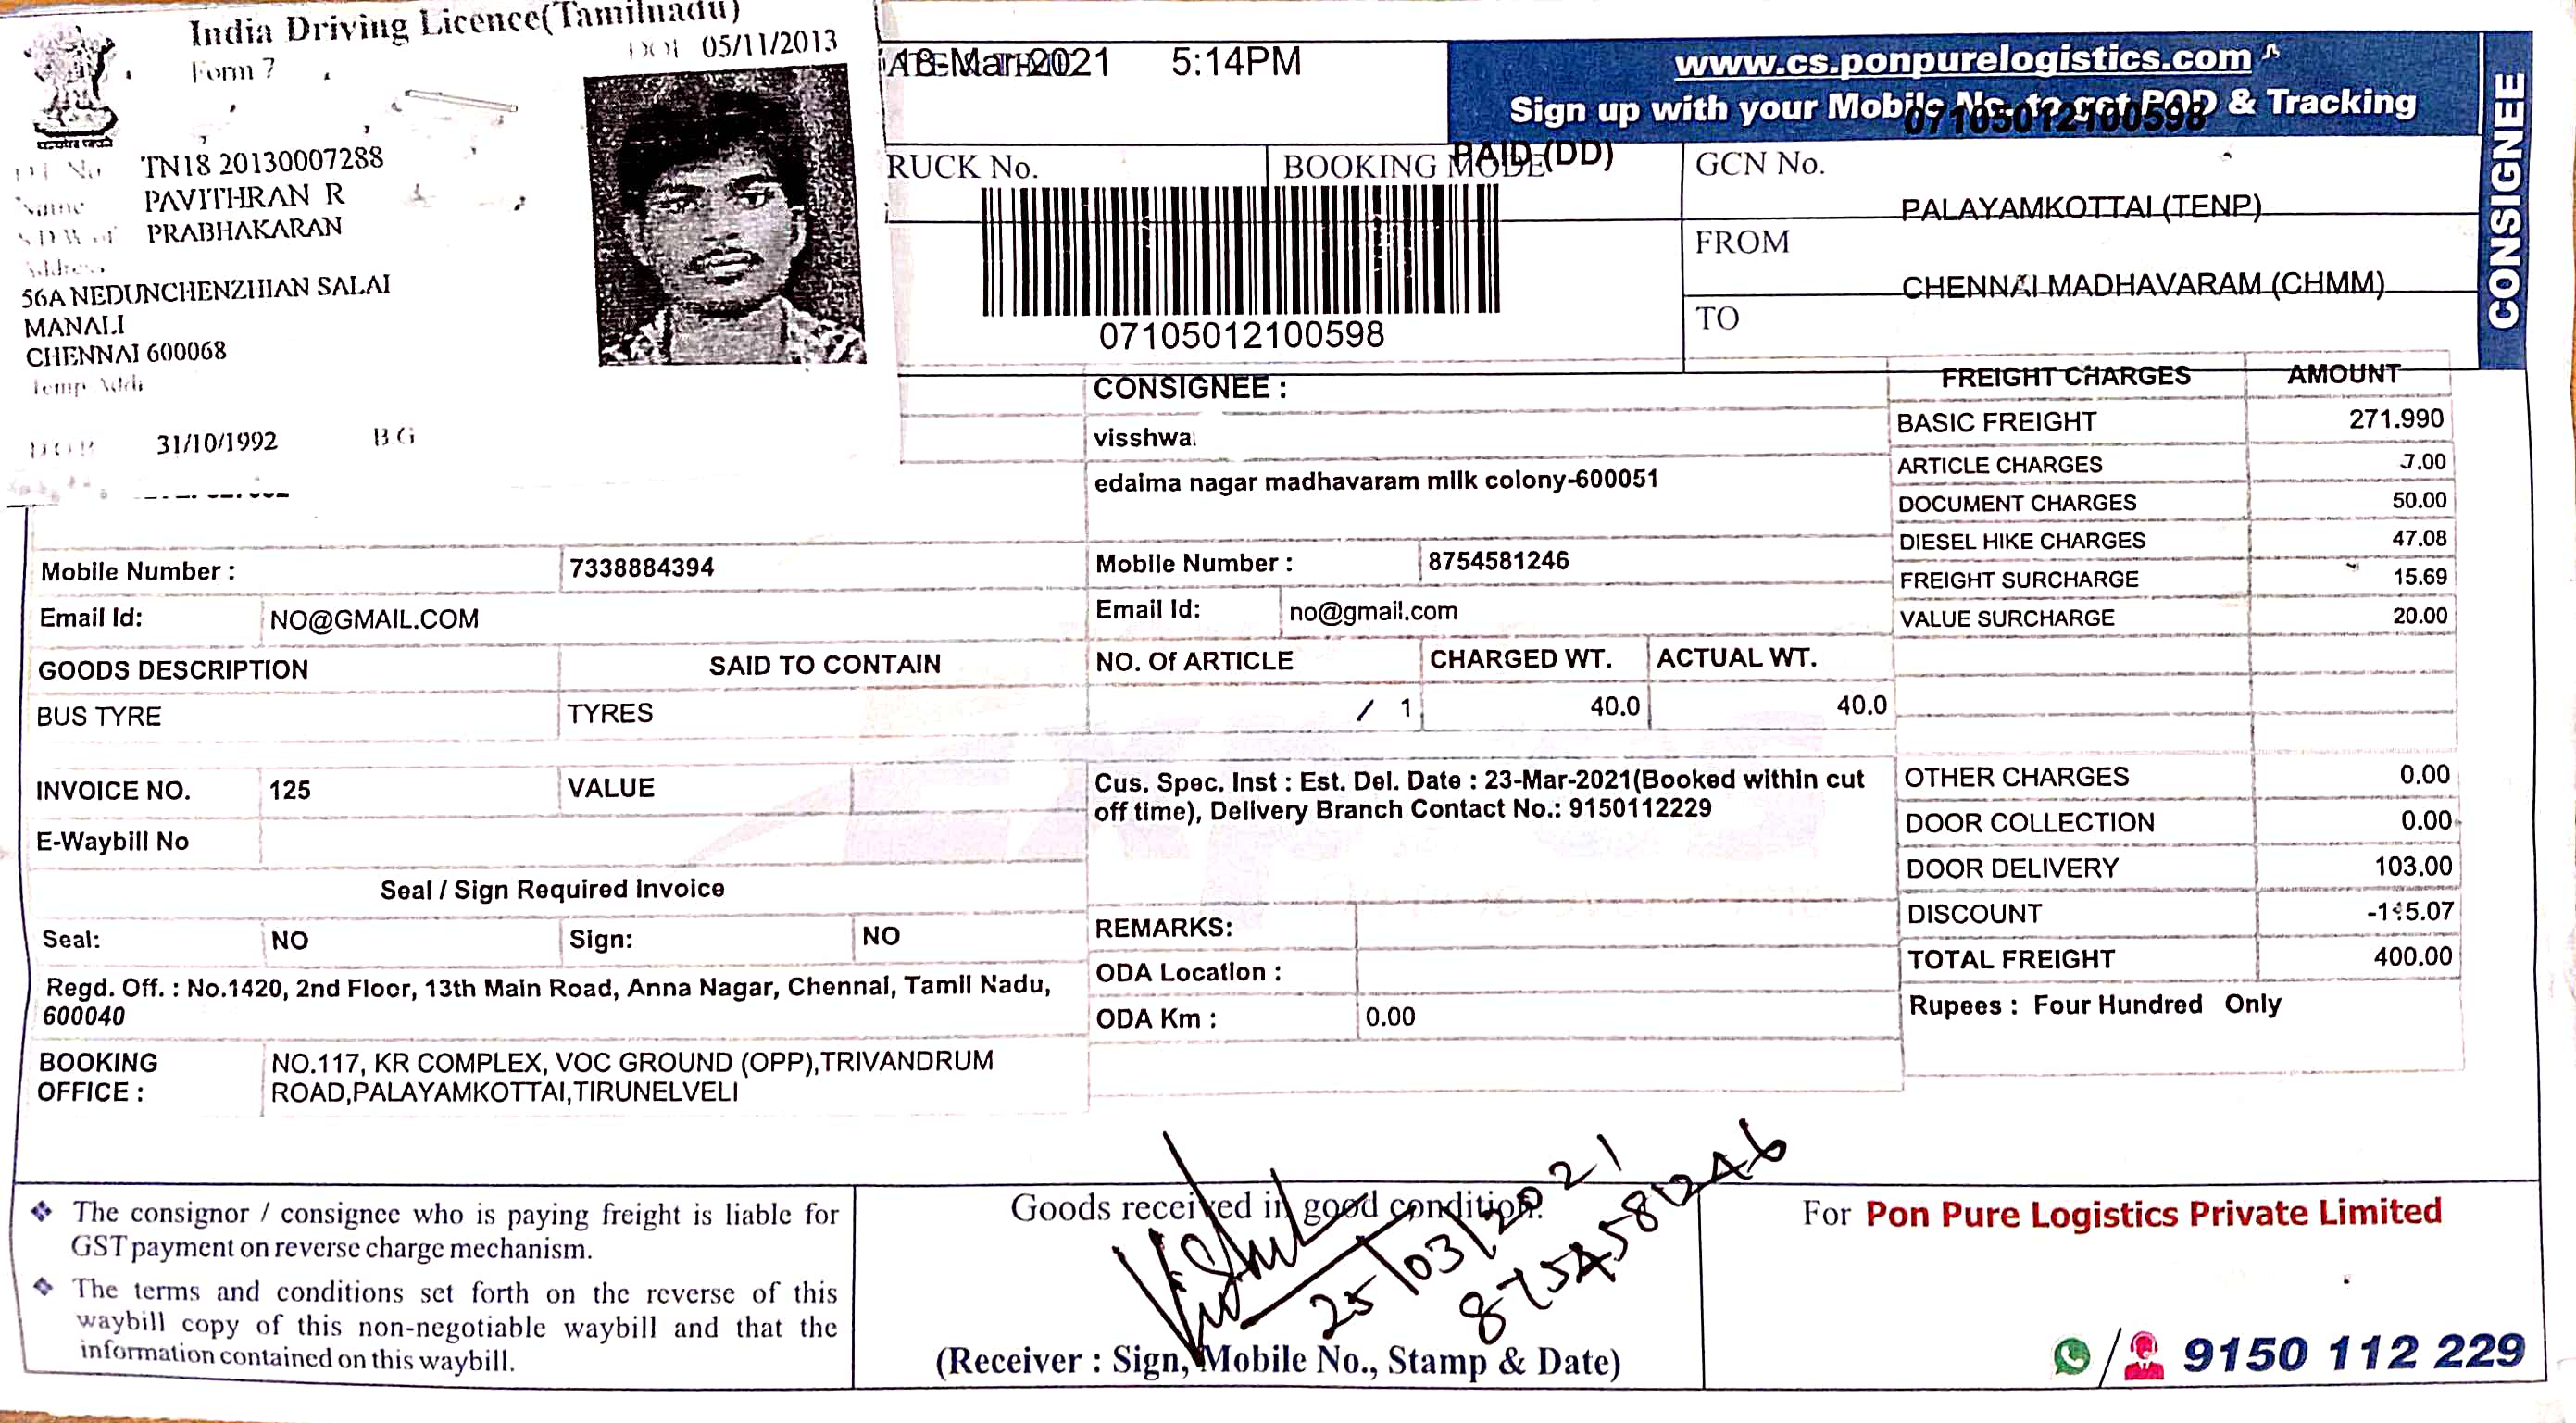 India Driving Licence(Tamilnadu)
Form 7
DOI 05/11/2013
TN18 20130007288
Name PAVITHRAN R
PRABHAKARAN
Address
56A NEDUNCHENZHIAN SALAI
MANALI
CHENNAI 600068
Temp Addr
31/10/1992 BG
18-Mar-2021 5:14PM
www.cs.ponpurelogistics.com
Sign up with your Mobile No. to get POD & Tracking
07105012100598
CONSIGNEE
RUCK No.
BOOKING MODE
PAID (DD)
GCN No.
PALAYAMKOTTAI (TENP)
FROM
CHENNAI MADHAVARAM (CHMM)
TO
07105012100598
CONSIGNEE :
visshwa
edaima nagar madhavaram milk colony-600051
Mobile Number : 7338884394
Mobile Number : 8754581246
Email Id: NO@GMAIL.COM
Email Id: no@gmail.com
GOODS DESCRIPTION SAID TO CONTAIN
NO. Of ARTICLE CHARGED WT. ACTUAL WT.
BUS TYRE TYRES
/ 1 40.0 40.0
FREIGHT CHARGES AMOUNT
BASIC FREIGHT 271.990
ARTICLE CHARGES 7.00
DOCUMENT CHARGES 50.00
DIESEL HIKE CHARGES 47.08
FREIGHT SURCHARGE 15.69
VALUE SURCHARGE 20.00
OTHER CHARGES 0.00
DOOR COLLECTION 0.00
DOOR DELIVERY 103.00
DISCOUNT
TOTAL FREIGHT 400.00
Rupees : Four Hundred Only
INVOICE NO. 125 VALUE
E-Waybill No
Seal / Sign Required Invoice
Seal: NO Sign: NO
Cus. Spec. Inst : Est. Del. Date : 23-Mar-2021(Booked within cut
off time), Delivery Branch Contact No.: 9150112229
REMARKS:
ODA Location :
ODA Km : 0.00
Regd. Off. : No.1420, 2nd Floor, 13th Main Road, Anna Nagar, Chennai, Tamil Nadu,
600040
BOOKING
OFFICE :
NO.117, KR COMPLEX, VOC GROUND (OPP),TRIVANDRUM
ROAD,PALAYAMKOTTAI,TIRUNELVELI
The consignor / consignee who is paying freight is liable for
GST payment on reverse charge mechanism.
The terms and conditions set forth on the reverse of this
waybill copy of this non-negotiable waybill and that the
information contained on this waybill.
Goods received in good condition.
25/03/2021
8754581246
(Receiver : Sign, Mobile No., Stamp & Date)
For Pon Pure Logistics Private Limited
9150 112 229